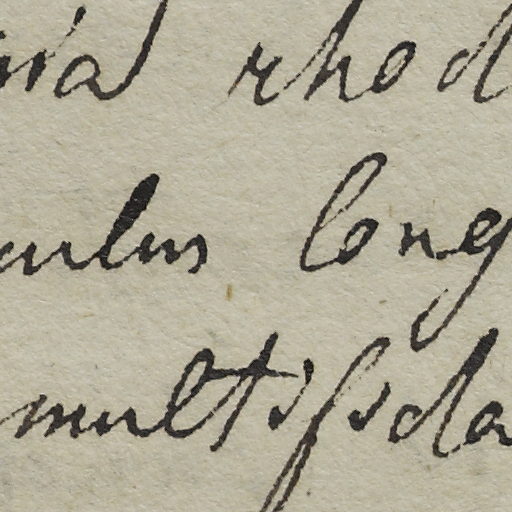 rhod
culus long
multifida